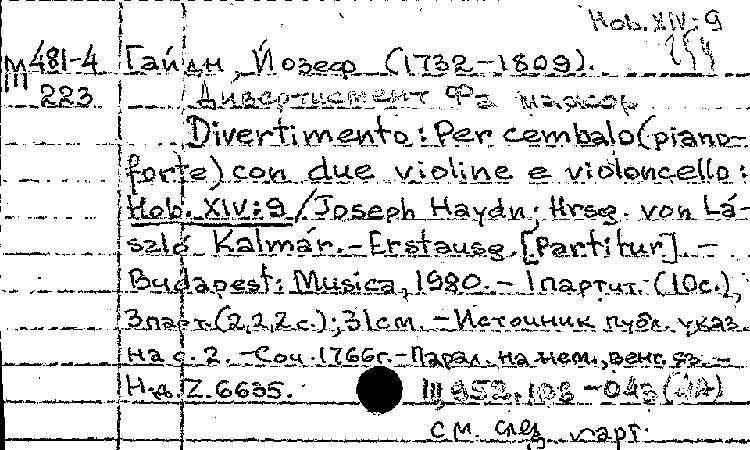 Hob. XIV:9
М 481-4 Гайдн, Йозеф (1732-1809).
III 223 Дивертисмент Фа мажор
Divertimento: Per cembalo(piano-
forte) con due violine e violoncello:
Hob. XIV:9/Joseph Haydn; Hrsg. von Lá-
szló Kalmár.-Erstausg.[Partitur].-
Budapest: Musica, 1980.-1партит.(10с.),
3парт.(2,2,2с.); 31см.-Источник публ. указ.
на с. 2.-Соч. 1766г.-Парал. на нем., венг. яз.-
Н.д. Z.6635.
см. след. карт.